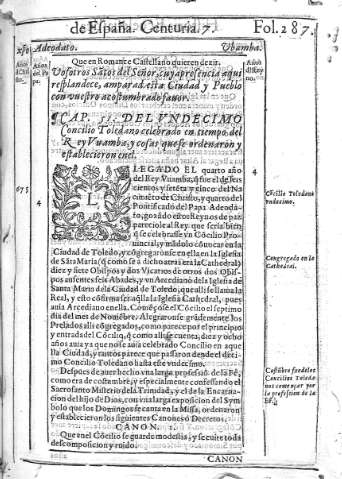 de España Centuria. 7. Fol. 287.
Adeodato. Vbamba.
Que en Romance Castellano quieren dezir.
Vosotros Sãtos del Señor, cuya presencia aqui
resplandece, amparad esta Ciudad y Pueblo
con vuestro acostumbrado fauor.
CAP. 51. DEL VNDECIMO
Concilio Toledano celebrado en tiempo del
Rey Vuamba, y cosas que se ordenaron y
establecieron en el.
LLEGADO EL quarto año
del Rey Vuamba, q̃ fue el de seys-
cientos y setẽta y cinco del Na-
cimiẽto de Christo, y quarto del
Pontificado del Papa Adeoda-
to, gozãdo estos Reynos de paz
parecio le al Rey que seria biẽn
q̃ se celebrasse vn Cõcilio Pro-
uincial, y mãdolo cõuocar en la
Ciudad de Toledo, y cõgregarõse en ella en la Iglesia
de Sãta Maria (q̃ como se a dicho otras era la Cathedral)
diez y siete Obispos y dos Vicarios de otros dos Obis-
pos ausentes seis Abades, y vn Arcediano de la Iglesia de
Santa Maria de la Ciudad de Toledo, que alli se llama la
Real, y esto cõfirma ser aq̃lla la Iglesia Cathedral, pues
auia Arcediano en ella. Comẽçose el Cõcilio el septimo
dia del mes de Nouiẽbre. Alegraronse grãdemente los
Prelados alli cõgregados, como parece por el principio
y entrada del Cõcilio, q̃ como alli se cuenta, diez y ocho
años auia ya que no se auia celebrado Concilio en aque
lla Ciudad, y tantos parece que passaron dende el deci-
mo Concilio Toledano hasta este vndecimo.
Despues de auer hecho vna larga profession de la Fè,
como era de costumbre, y especialmente confessando el
Sacrosanto Misterio de la Trinidad, y el de la Encarna-
cion del hijo de Dios, con vna larga exposicion del Sym
bolo que los Domingos se canta en la Missa, ordenaron
y establecieron los siguientes Canones y Decretos.
CANON. 1.
Que en el Cõcilio se guarde modestia, y se euite toda
descomposicion y ruido.
CANON
675
4
4
Cõcilio Toledano
vndecimo.
Congregado en la
Cathedral.
Costũbre fue de los
Concilios Toleda
nos començar por
la profession de la
Fè.